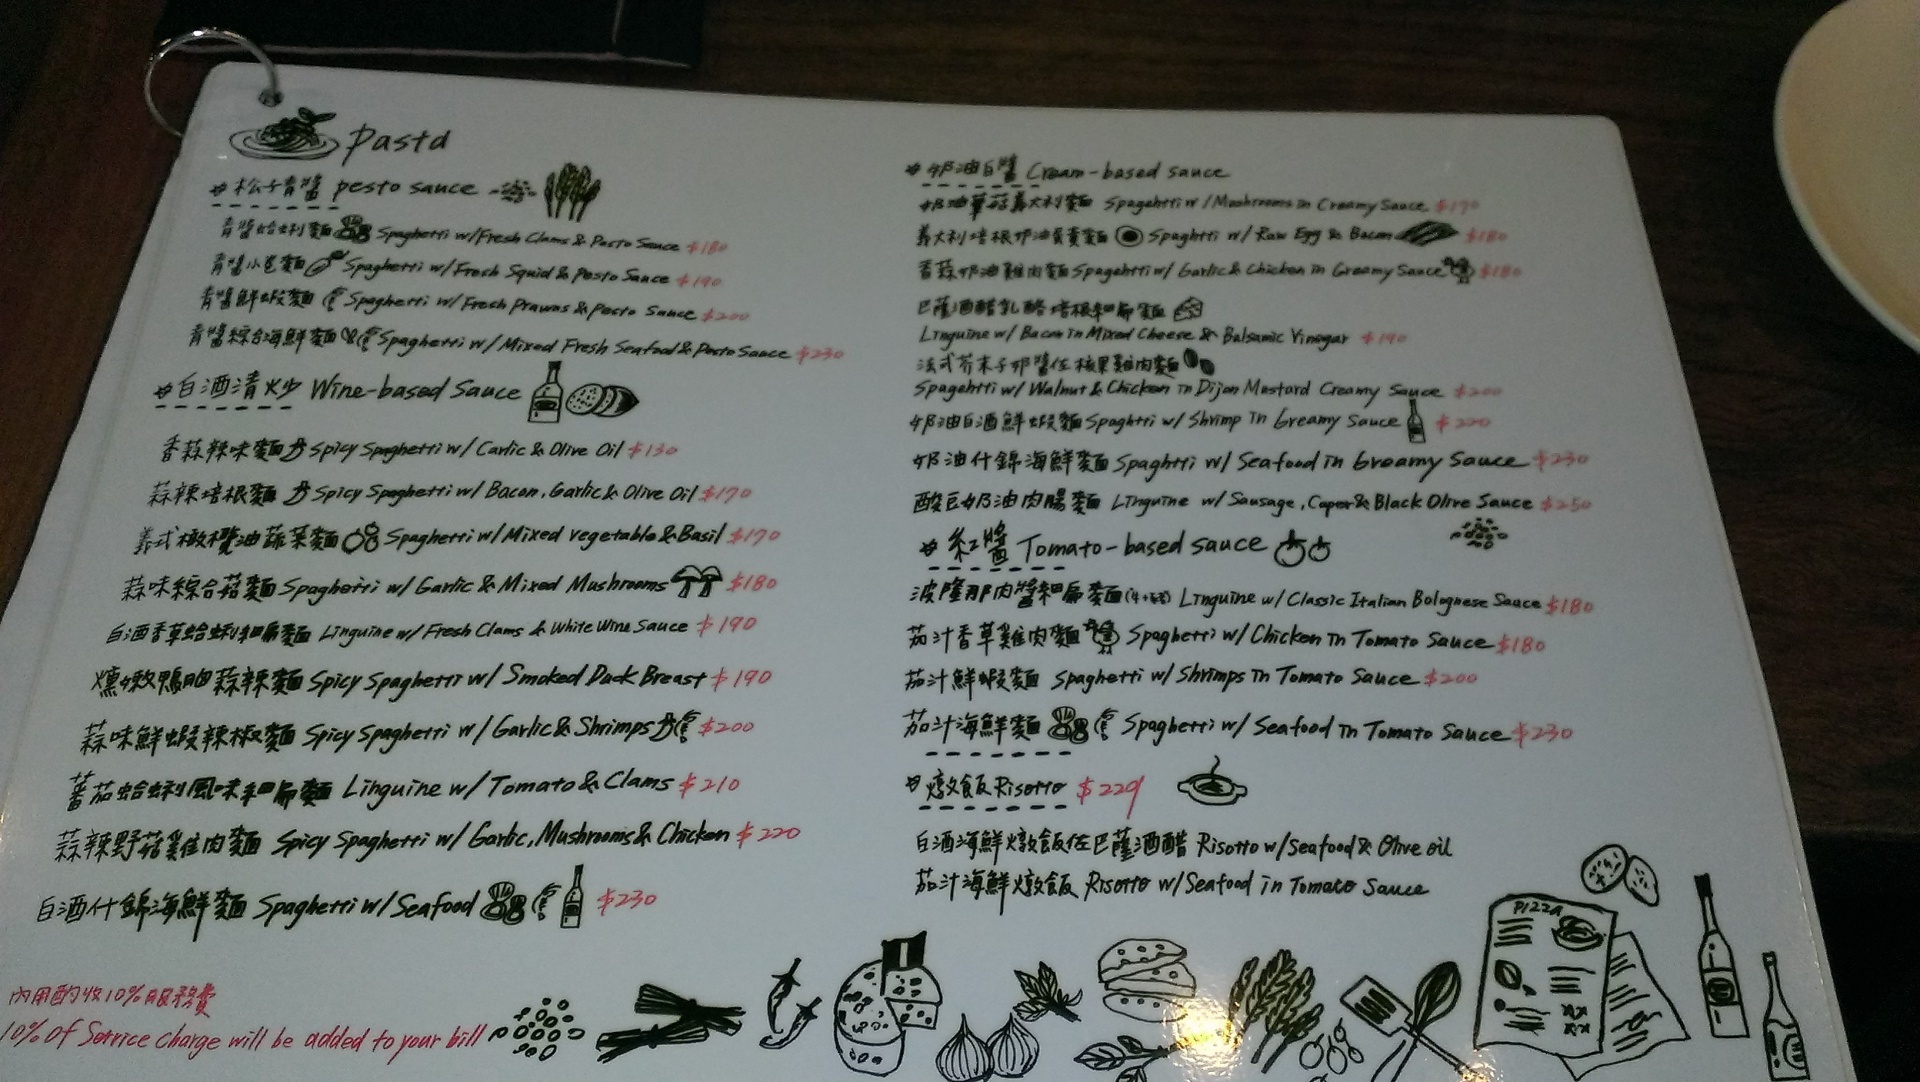 Pasta
松子青醬 pesto sauce
青醬蛤蜊麵 Spaghetti w/Fresh Clams & Pesto Sauce $180
青醬小卷麵 Spaghetti w/Fresh Squid & Pesto Sauce $190
青醬鮮蝦麵 Spaghetti w/Fresh Prawns & Pesto Sauce $200
青醬綜合海鮮麵 Spaghetti w/Mixed Fresh Seafood & Pesto Sauce $230
白酒清炒 Wine-based Sauce
香蒜辣味麵 Spicy Spaghetti w/ Garlic & Olive Oil $130
蒜辣培根麵 Spicy Spaghetti w/ Bacon, Garlic & Olive Oil $170
義式橄欖油蔬菜麵 Spaghetti w/Mixed vegetable & Basil $170
蒜味綜合菇麵 Spaghetti w/ Garlic & Mixed Mushrooms $180
白酒香草蛤蜊細扁麵 Linguine w/Fresh Clams & White Wine Sauce $190
燻嫩鴨胸蒜辣麵 Spicy Spaghetti w/ Smoked Duck Breast $190
蒜味鮮蝦辣椒麵 Spicy Spaghetti w/ Garlic & Shrimps $200
蕃茄蛤蜊風味細扁麵 Linguine w/ Tomato & Clams $210
蒜辣野菇雞肉麵 Spicy Spaghetti w/ Garlic, Mushrooms & Chicken $220
白酒什錦海鮮麵 Spaghetti w/Seafood $230
內用酌收10%服務費
10% of Service charge will be added to your bill
奶油白醬 Cream-based sauce
奶油蘑菇義大利麵 Spagehtti w/Mushrooms in Creamy Sauce $170
義大利培根奶油蛋黃麵 Spaghtti w/ Raw Egg & Bacon $180
香蒜奶油雞肉麵 Spagehtti w/ Garlic & Chicken in Creamy Sauce $180
巴薩酒醋乳酪培根細扁麵
Linguine w/ Bacon in Mixed Cheese & Balsamic Vinegar $190
法式芥末子奶醬佐核果雞肉麵
Spagehtti w/ Walnut & Chicken in Dijon Mustard Creamy Sauce $200
奶油白酒鮮蝦麵 Spaghtti w/ Shrimp in Creamy Sauce $220
奶油什錦海鮮麵 Spaghtti w/ Seafood in Creamy Sauce $230
酸豆奶油肉腸麵 Linguine w/ Sausage, Caper & Black Olive Sauce $250
紅醬 Tomato-based sauce
波隆那肉醬細扁麵 Linguine w/ Classic Italian Bolognese Sauce $180
茄汁香草雞肉麵 Spaghetti w/ Chicken in Tomato Sauce $180
茄汁鮮蝦麵 Spaghetti w/ Shrimps in Tomato Sauce $200
茄汁海鮮麵 Spaghetti w/ Seafood in Tomato Sauce $230
燉飯 Risotto $229
白酒海鮮燉飯佐巴薩酒醋 Risotto w/Seafood & Olive oil
茄汁海鮮燉飯 Risotto w/Seafood in Tomato Sauce
PIZZA